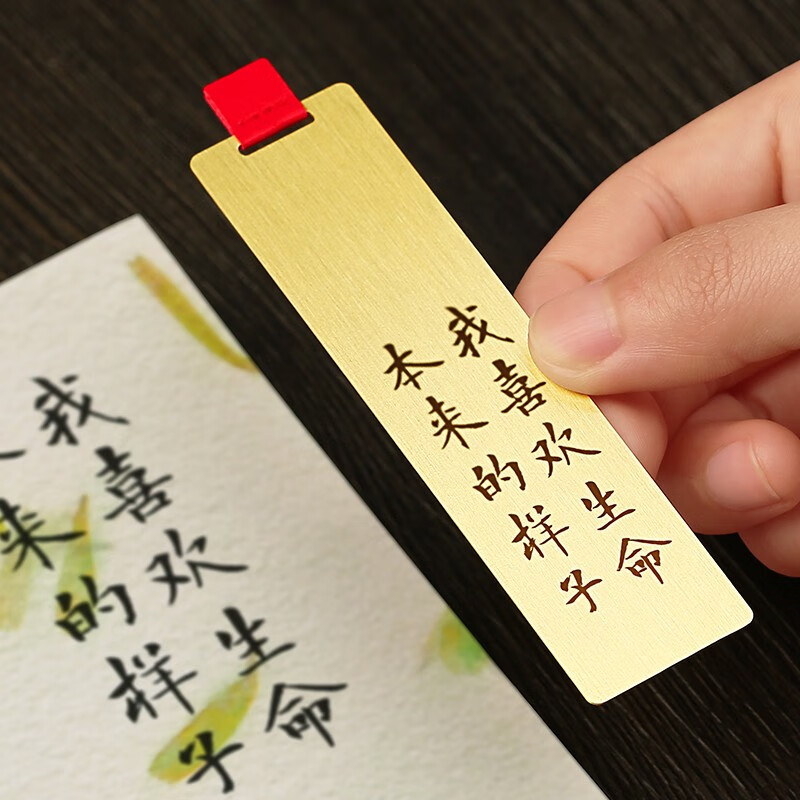 我喜欢生命
本来的样子
我喜欢生命
来的样子